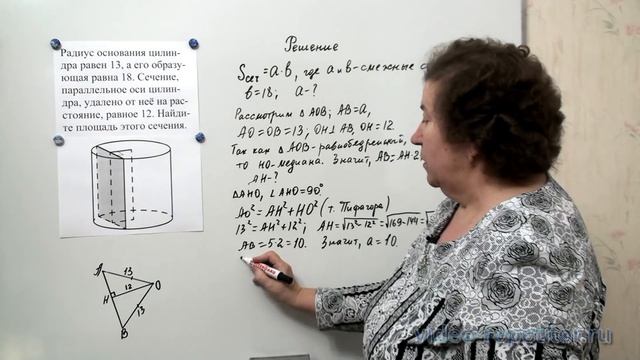 Радиус основания цилин-
дра равен 13, а его образу-
ющая равна 18. Сечение,
параллельное оси цилин-
дра, удалено от неё на рас-
стояние, равное 12. Найди-
те площадь этого сечения.
Решение
Sсеч = a·b, где a и b – смежные с
b=18; a-?
Рассмотрим △AOB; AB=a,
AO=OB=13, OH⊥AB, OH=12.
Так как △AOB-равнобедренный,
то HO-медиана. Значит, AB=AH·2
AH-?
△AHO, ∠AHO=90°
AO²=AH²+HO² (т. Пифагора)
13²=AH²+12²; AH=√13²-12²=√169-144=√
AB=5·2=10. Значит, a=10
A
13
H
12
O
13
B
video-repetitor.ru